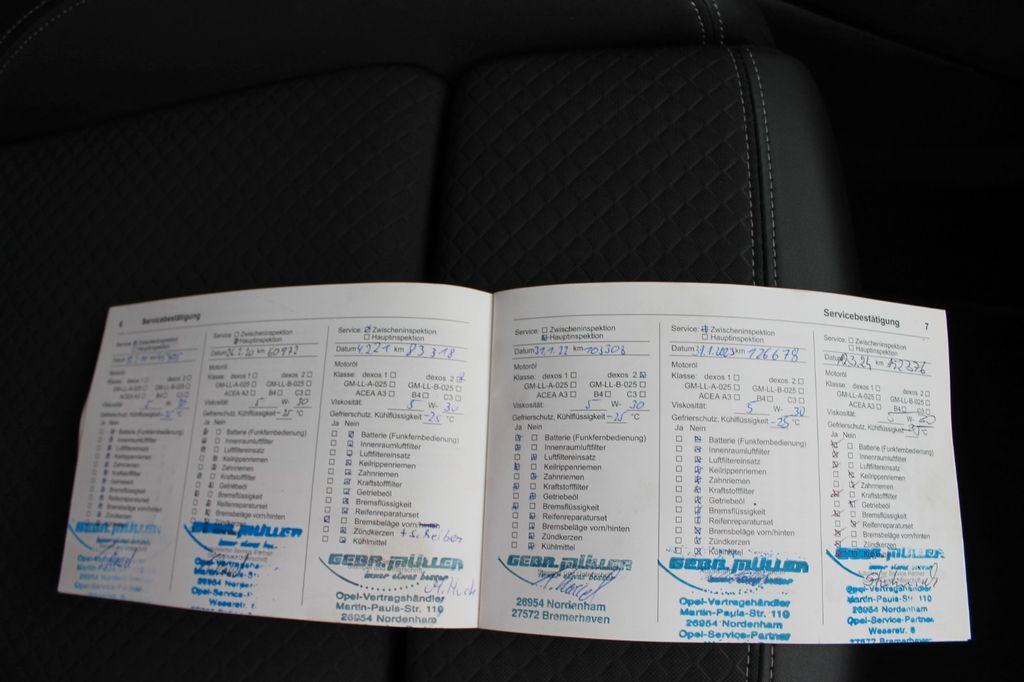 6 Servicebestätigung
Service: Zwischeninspektion
Hauptinspektion
Datum km
Motoröl
Klasse: dexos 1 dexos 2
GM-LL-A-025 GM-LL-B-025
ACEA A3 B4 C3
Viskosität: 5 W- 30
Gefrierschutz, Kühlflüssigkeit °C
Ja Nein
Batterie (Funkfernbedienung)
Innenraumluftfilter
Luftfiltereinsatz
Keilrippenriemen
Zahnriemen
Kraftstofffilter
Getriebeöl
Bremsflüssigkeit
Reifenreparaturset
Bremsbeläge vorn/hinten
Zündkerzen
GEBR. MÜLLER
Service: Zwischeninspektion
Hauptinspektion
Datum km 60973
Motoröl
Klasse: dexos 1 dexos 2
GM-LL-A-025 GM-LL-B-025
ACEA A3 B4 C3
Viskosität: 5 W- 30
Gefrierschutz, Kühlflüssigkeit -25 °C
Ja Nein
Batterie (Funkfernbedienung)
Innenraumluftfilter
Luftfiltereinsatz
Keilrippenriemen
Zahnriemen
Kraftstofffilter
Getriebeöl
Bremsflüssigkeit
Reifenreparaturset
Bremsbeläge vorn/hinten
GEBR. MÜLLER
Service: Zwischeninspektion
Hauptinspektion
Datum 4221 km 83318
Motoröl
Klasse: dexos 1 dexos 2
GM-LL-A-025 GM-LL-B-025
ACEA A3 B4 C3
Viskosität: 5 W- 30
Gefrierschutz, Kühlflüssigkeit -25 °C
Ja Nein
Batterie (Funkfernbedienung)
Innenraumluftfilter
Luftfiltereinsatz
Keilrippenriemen
Zahnriemen
Kraftstofffilter
Getriebeöl
Bremsflüssigkeit
Reifenreparaturset
Bremsbeläge vorn/hinten
Zündkerzen + Scheiben
Kühlmittel
GEBR. MÜLLER
immer etwas besser
Opel-Vertragshändler
Martin-Pauls-Str. 110
26954 Nordenham
Servicebestätigung 7
Service: Zwischeninspektion
Hauptinspektion
Datum 31.1.22 km 105308
Motoröl
Klasse: dexos 1 dexos 2
GM-LL-A-025 GM-LL-B-025
ACEA A3 B4 C3
Viskosität: 5 W- 30
Gefrierschutz, Kühlflüssigkeit -25 °C
Ja Nein
Batterie (Funkfernbedienung)
Innenraumluftfilter
Luftfiltereinsatz
Keilrippenriemen
Zahnriemen
Kraftstofffilter
Getriebeöl
Bremsflüssigkeit
Reifenreparaturset
Bremsbeläge vorn/hinten
Zündkerzen
Kühlmittel
GEBR. MÜLLER
immer etwas besser
26954 Nordenham
27572 Bremerhaven
Service: Zwischeninspektion
Hauptinspektion
Datum 31.1.2023 km 126678
Motoröl
Klasse: dexos 1 dexos 2
GM-LL-A-025 GM-LL-B-025
ACEA A3 B4 C3
Viskosität: 5 W- 30
Gefrierschutz, Kühlflüssigkeit -25 °C
Ja Nein
Batterie (Funkfernbedienung)
Innenraumluftfilter
Luftfiltereinsatz
Keilrippenriemen
Zahnriemen
Kraftstofffilter
Getriebeöl
Bremsflüssigkeit
Reifenreparaturset
Bremsbeläge vorn/hinten
Zündkerzen
GEBR. MÜLLER
immer etwas besser
Opel-Vertragshändler
Martin-Pauls-Str. 110
26954 Nordenham
Opel-Service-Partner
Service: Zwischeninspektion
Hauptinspektion
Datum km 152276
Motoröl
Klasse: dexos 1 dexos 2
GM-LL-A-025 GM-LL-B-025
ACEA A3 B4 C3
Viskosität: 5 W- 30
Gefrierschutz, Kühlflüssigkeit °C
Ja Nein
Batterie (Funkfernbedienung)
Innenraumluftfilter
Luftfiltereinsatz
Keilrippenriemen
Zahnriemen
Kraftstofffilter
Getriebeöl
Bremsflüssigkeit
Reifenreparaturset
Bremsbeläge vorn/hinten
Zündkerzen
MÜLLER
Opel-Vertragshändler
Martin-Pauls-Str. 110
26954 Nordenham
Opel-Service-Partner
Weserstr. 6
27572 Bremerhaven